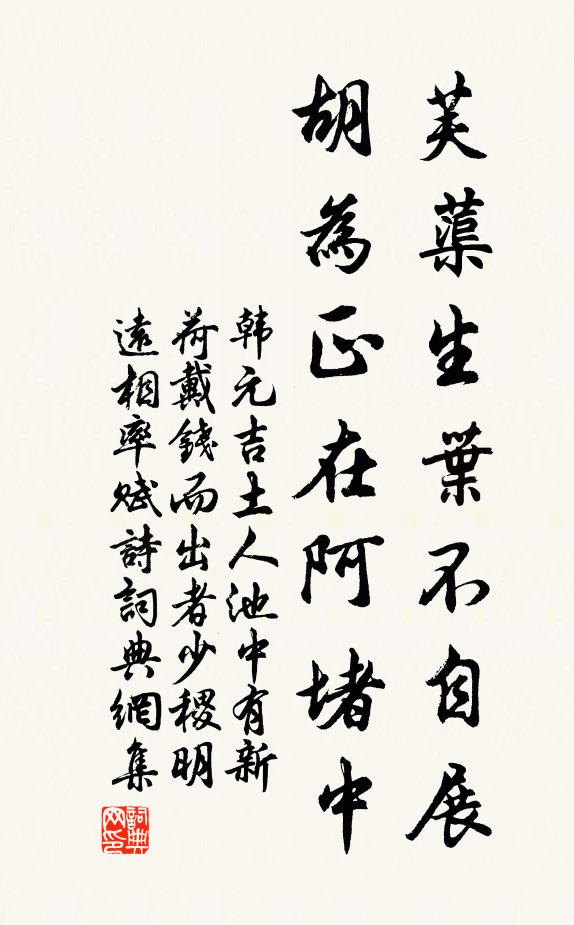 芙蕖生葉不自展
胡為正在阿堵中
韩元吉士人池中有新
荷戴錢而出者少稷明
遠相率賦詩詞典網集
詞典网印